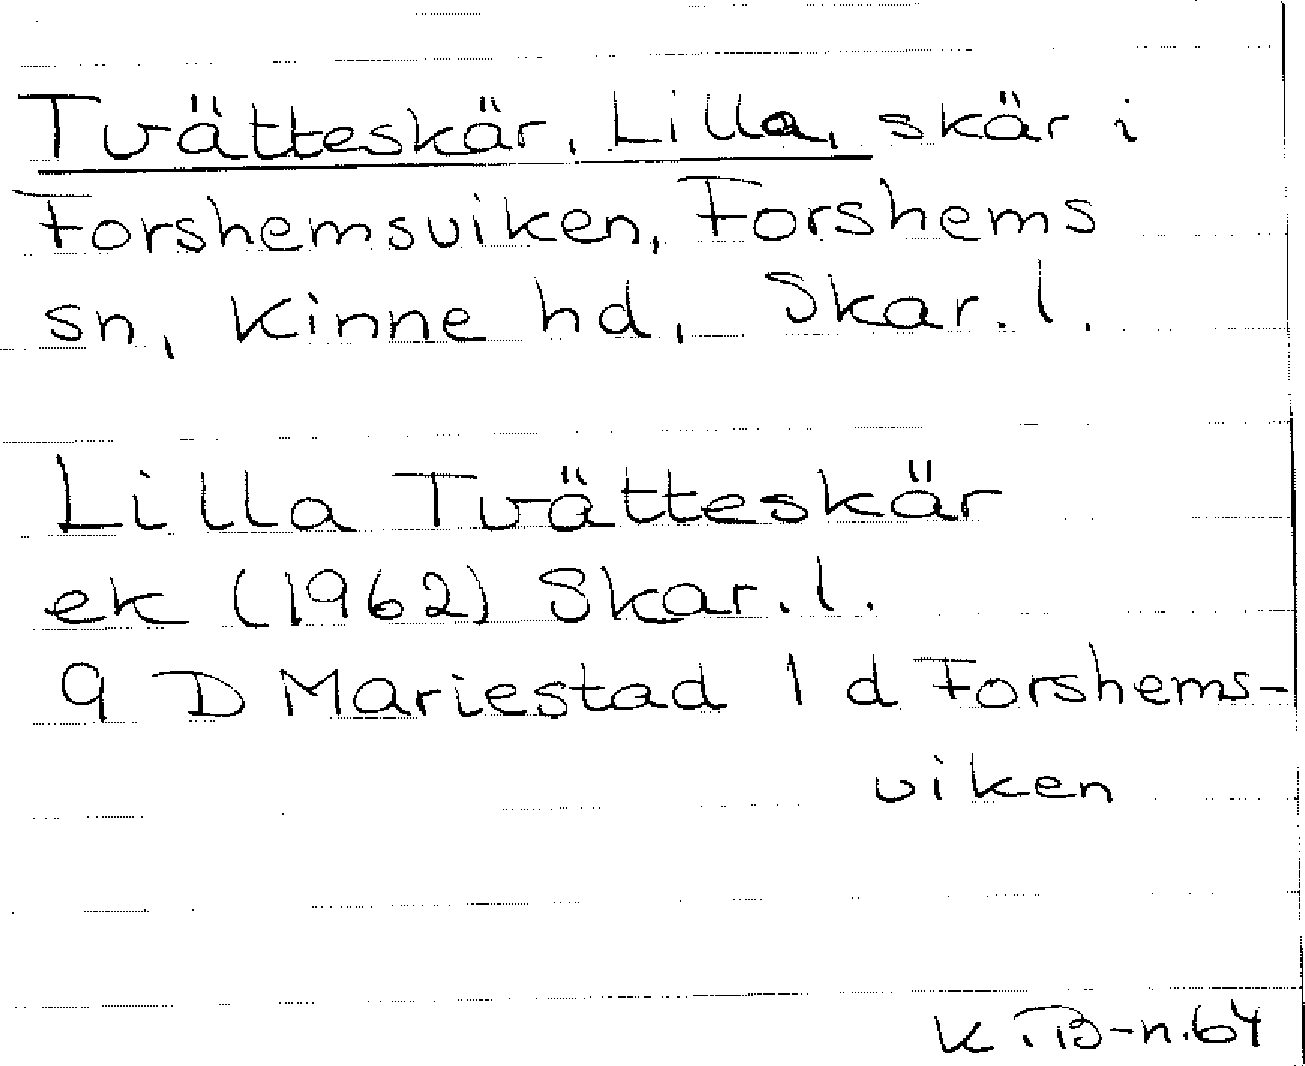 Tvätteskär, Lilla, skär i
Forshemsviken, Forshems
sn, Kinne hd, Skar. l.
Lilla Tvätteskär
ek (1962) Skar. l.
9 D Mariestad 1 d Forshems-
viken
K.T.B-n.64